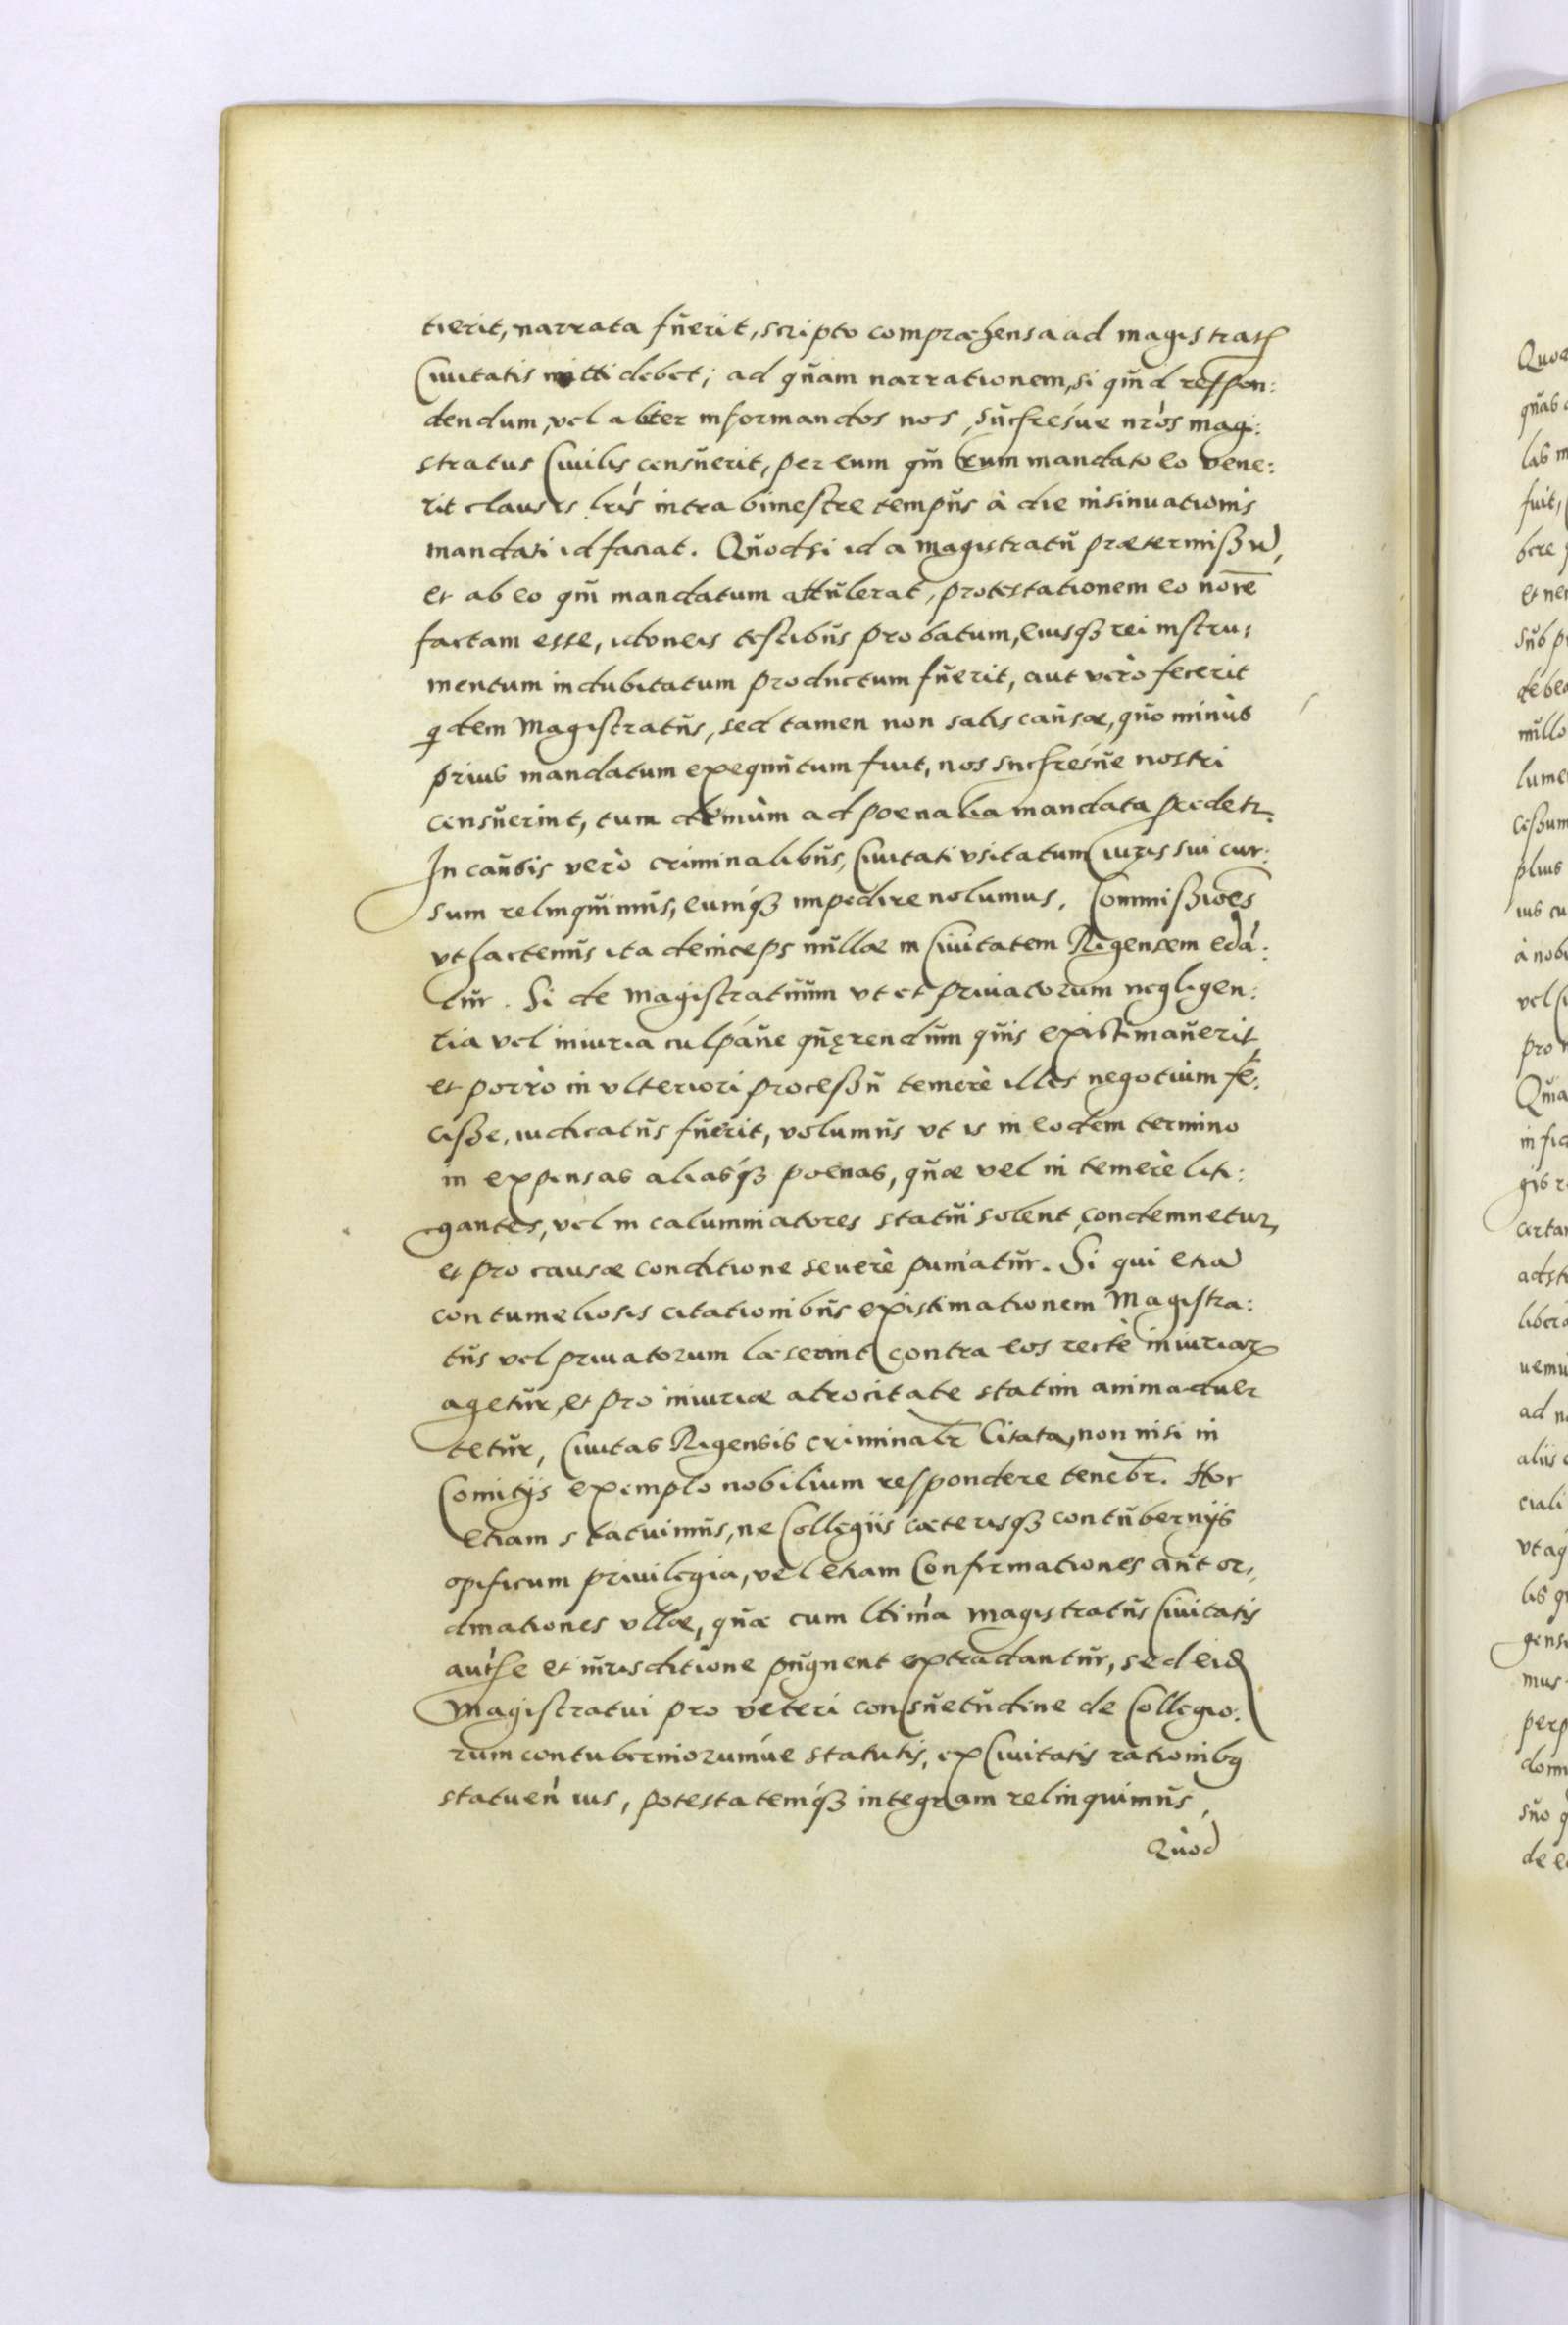 tierit, narrata fuerit, scripto compræhensa ad magistratũ
Ciuitatis mitti debet; ad quam narrationem, si quid respon:
dendum, vel aliter informandos nos, Successóresue nr̃os magi:
stratus Ciuilis censuerit, per eum qui cum mandato eo vene:
rit clausis lr̃is intra bimestre tempus à die insinuationis
mandati id faciat. Quodsi id à magistratu prætermißũ,
et ab eo qui mandatum attulerat, protestationem eo nomĩe
factam esse, idoneis testibus probatum, eiusqȝ rei instru:
mentum indubitatum productum fuerit, aut verò fecerit
qdem Magistratus, sed tamen non satis causæ, quo minùs
prius mandatum exequutum fuit, nos succresúe nostri
censuerint, tum demùm ad poenalia mandata procedetr.
In causis verò criminalibus, Ciuitati vsitatum Iuris sui cur:
sum relinquimus, eumqȝ impedire nolumus. Commißiões
vt hactenus ita deinceps nullæ in Ciuitatem Rigensem edã:
tur. Si de Magistratuum vt et priuatorum negligen:
tia vel iniuria culpáue quęrendum quis existimauerit
et porrò in vlteriori proceßu temerè illis negotium fe:
ciße, iudicatus fuerit, volumus vt is in eodem termino
in expensas aliasqȝ poenas, quæ vel in temerè liti:
gantes, vel in calumniatores statui solent, condemnetur,
et pro causæ conditione seuerè puniatur. Si qui etiã
contumeliosis citationibus existimationem Magistra:
tus vel priuatorum læserint contra eos rectè iniuriarũ
agetur, et pro iniuriæ atrocitate statim animaduer
tetur, Ciuitas Rigensis criminalr̃ Citata, non nisi in
Comitijs exemplo nobilium respondere tenebr̃. Hoc
etiam statuimus, ne Collegiis cæterisqȝ contubernijs
opificum priuilegia, vel etiam Confirmationes aut or:
dinationes vllæ, quæ cum ltima magistratus Ciuitatis
autħe et iurisditione pugnent extradantur, sed eidẽ
Magistratui pro veteri consuetudine de Collegio:
rum contuberniorumúe statutis, ex Ciuitatis rationibꝰ
statuen̄ ius, potestatemqȝ integram relinquimus,
Quod